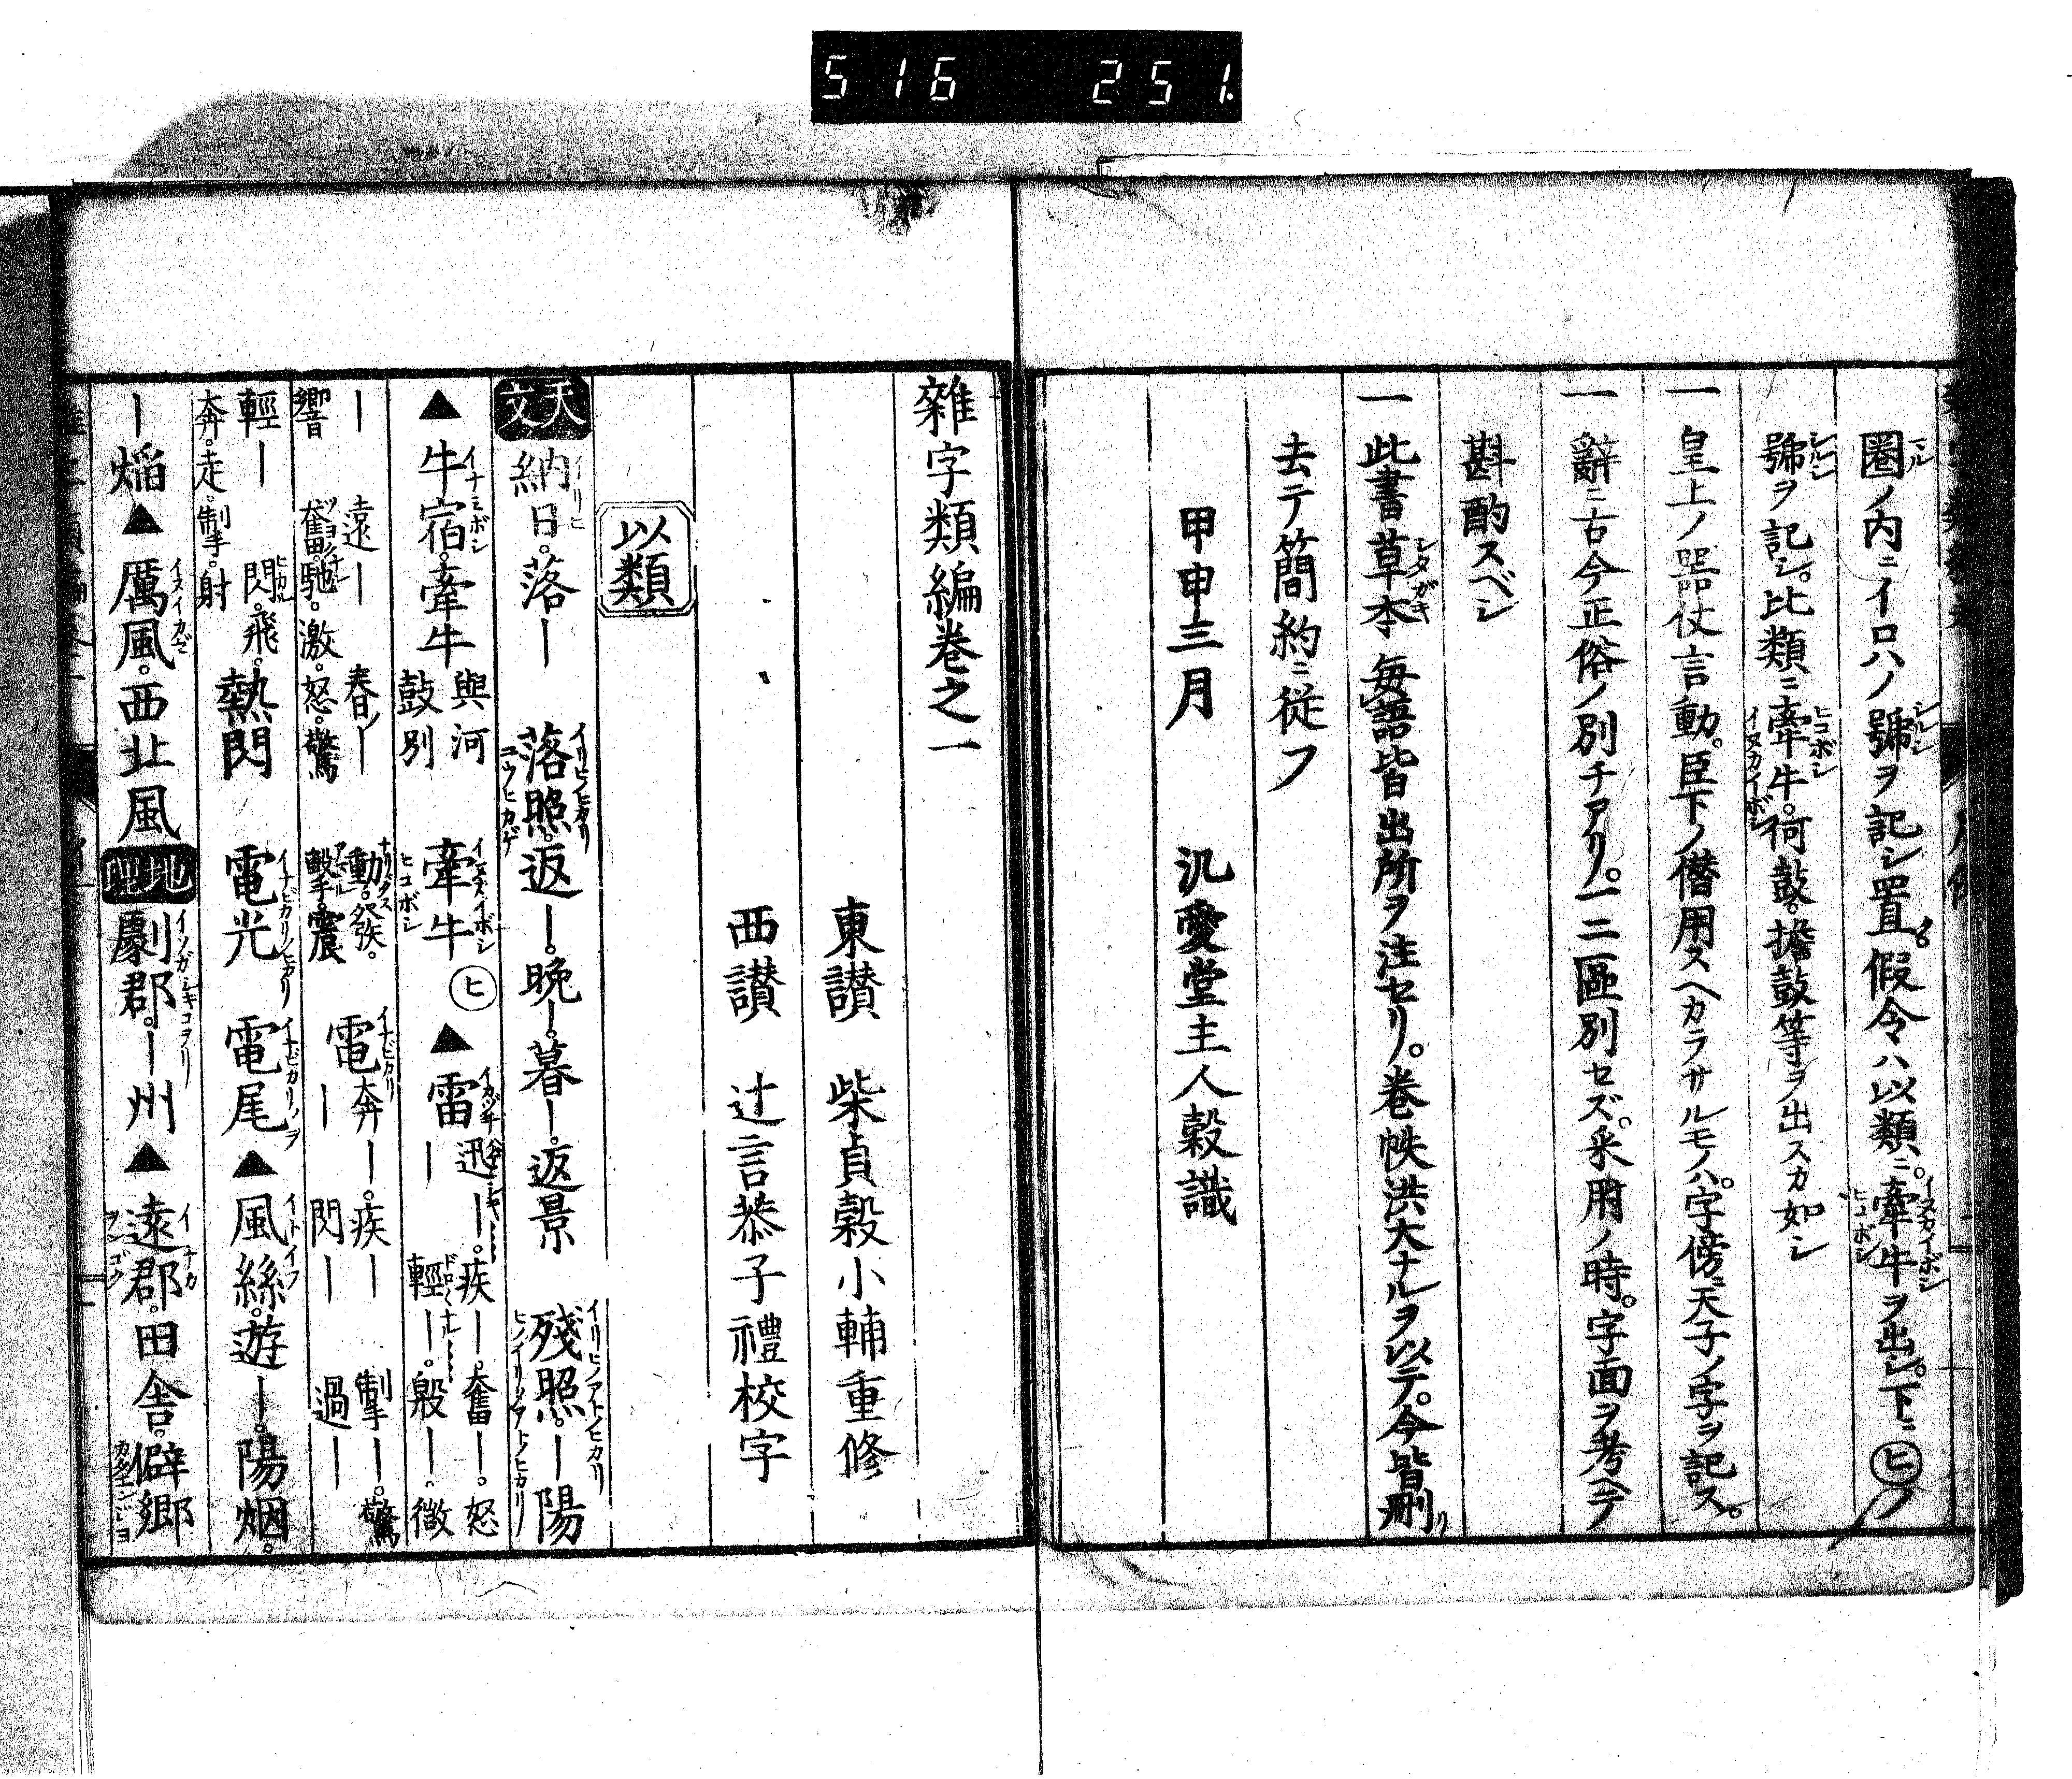 516 251.
圏ノ内ニイロハノ號ヲ記シ置ク。假令ハ以類ニ。牽牛ヲ出シ。下ニ㋪ノ
號ヲ記シ。比類ニ牽牛。河鼓。擔鼓等ヲ出スカ如シ
一皇上ノ器仗言動。臣下ノ僣用スヘカラサルモノハ。字傍ニ天子ノ字ヲ記ス。
一辭ニ古今正俗ノ別チアリ。一二區別セズ。釆用ノ時。字面ヲ考ヘテ
斟酌スベシ
一此書草本毎語皆出所ヲ注セリ。巻帙洪大ナルヲ以テ。今皆刪リ
去テ簡約ニ従フ
甲申三月 汎愛堂主人穀識
雜字類編巻之一
東讃 柴貞穀小輔重修
西讃 辻言恭子禮校字
以類
天文 納日。落ー 落照。返ー。晩ー。暮ー。返景 殘照。ー陽
▲牛宿。牽牛 與河鼓別 牽牛㋪▲雷 迅ー。疾ー。奮ー。怒
ー 輕ー。殷ー。微
ー 遠ー 春ノー 動。發。 電 奔ー。疾ー 掣ー。驚
響 奮。馳。激。怒。驚 撃。震 ー 閃ー 過ー
輕ー 閃。飛。 熱閃 電光 電尾▲風絲。遊ー。陽烟。
奔。走。掣。射
ー焔▲厲風。西北風 地理 劇郡。ー州▲遠郡。田舎。僻郷